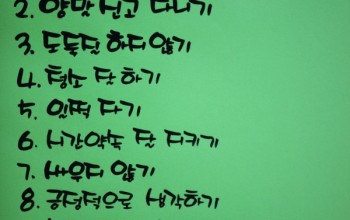 2. 양말 신고 다니기
3. 도둑질 하지 않기
4. 청소 잘 하기
5. 일찍 자기
6. 시간약속 잘 지키기
7. 싸우지 않기
8. 긍정적으로 생각하기